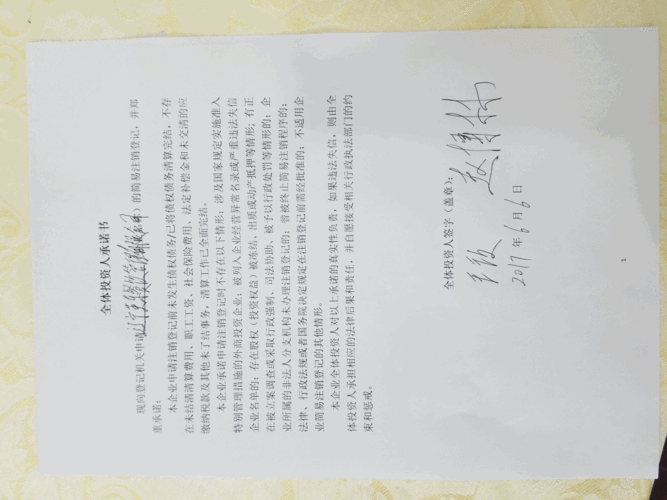 全体投资人承诺书
现向登记机关申请 的简易注销登记,并郑
重承诺:
本企业申请注销登记前未发生债权债务/已将债权债务清算完结,不存
在未结清清算费用、职工工资、社会保险费用、法定补偿金和未交清的应
缴纳税款及其他未了结事务,清算工作已全面完结。
本企业承诺申请注销登记时不存在以下情形:涉及国家规定实施准入
特别管理措施的外商投资企业;被列入企业经营异常名录或严重违法失信
企业名单的;存在股权(投资权益)被冻结、出质或动产抵押等情形;有正
在被立案调查或采取行政强制、司法协助、被予以行政处罚等情形的;企
业所属的非法人分支机构未办理注销登记的;曾被终止简易注销程序的;
法律、行政法规或者国务院决定规定在注销登记前需经批准的;不适用企
业简易注销登记的其他情形。
本企业全体投资人对以上承诺的真实性负责,如果违法失信,则由全
体投资人承担相应的法律后果和责任,并自愿接受相关行政执法部门的约
束和惩戒。
全体投资人签字(盖章):
2017年6月6日
1